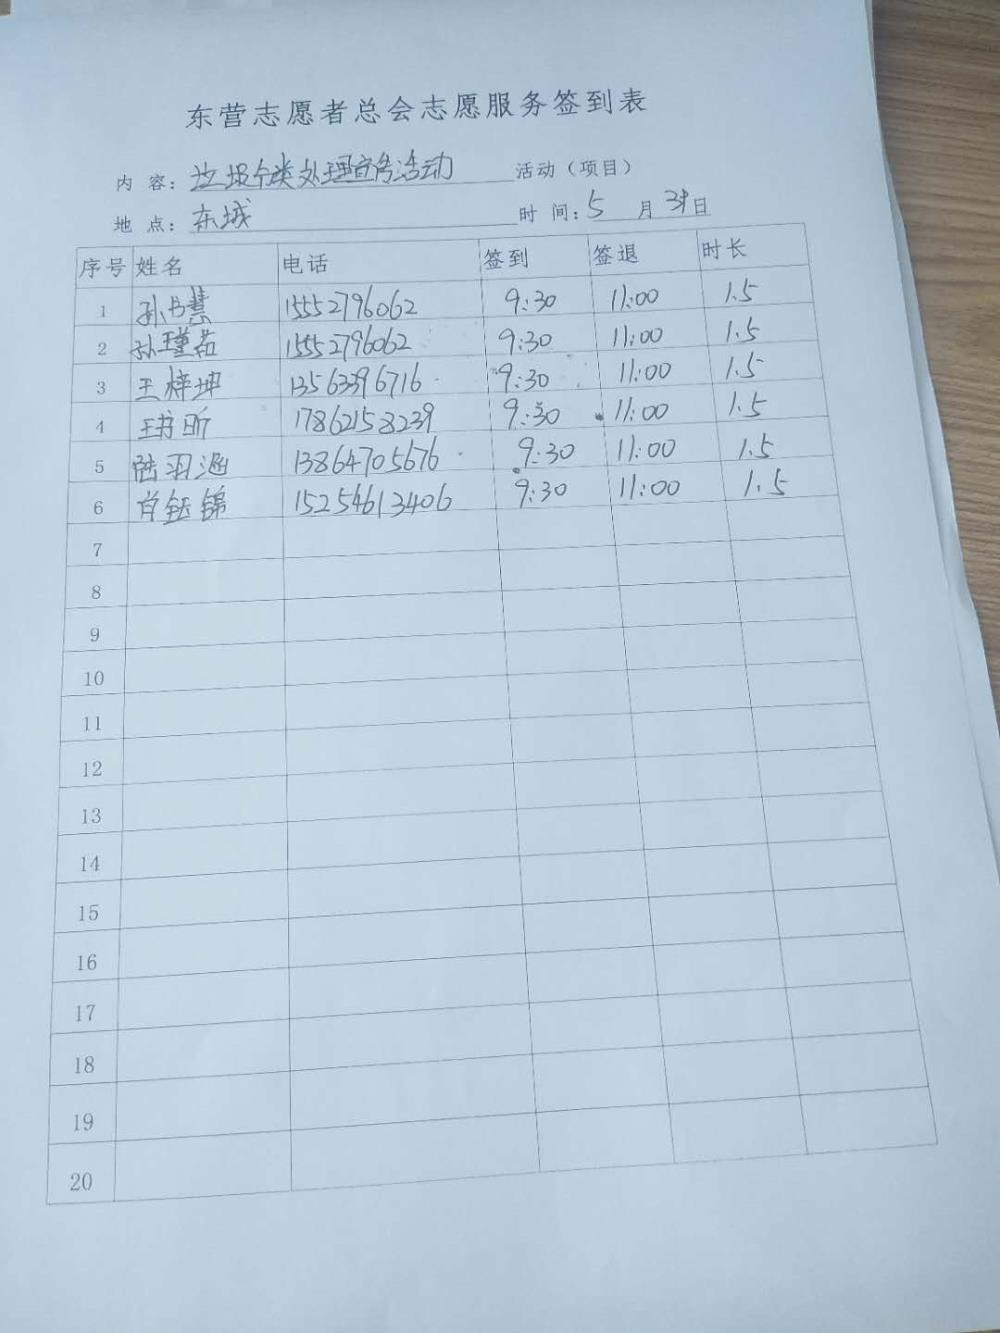 东营志愿者总会志愿服务签到表
内 容：垃圾分类处理宣传活动 活动（项目）
地 点：东城 时 间：5 月 31日
序号 姓名 电话 签到 签退 时长
1 孙书慧 15552796062 9:30 11:00 1.5
2 孙瑾茹 15552796062 9:30 11:00 1.5
3 王梓坤 13563396716 9:30 11:00 1.5
4 王书昕 17862158239 9:30 11:00 1.5
5 陆羽涵 13864705676 9:30 11:00 1.5
6 肖钰锦 15254613406 9:30 11:00 1.5
7
8
9
10
11
12
13
14
15
16
17
18
19
20